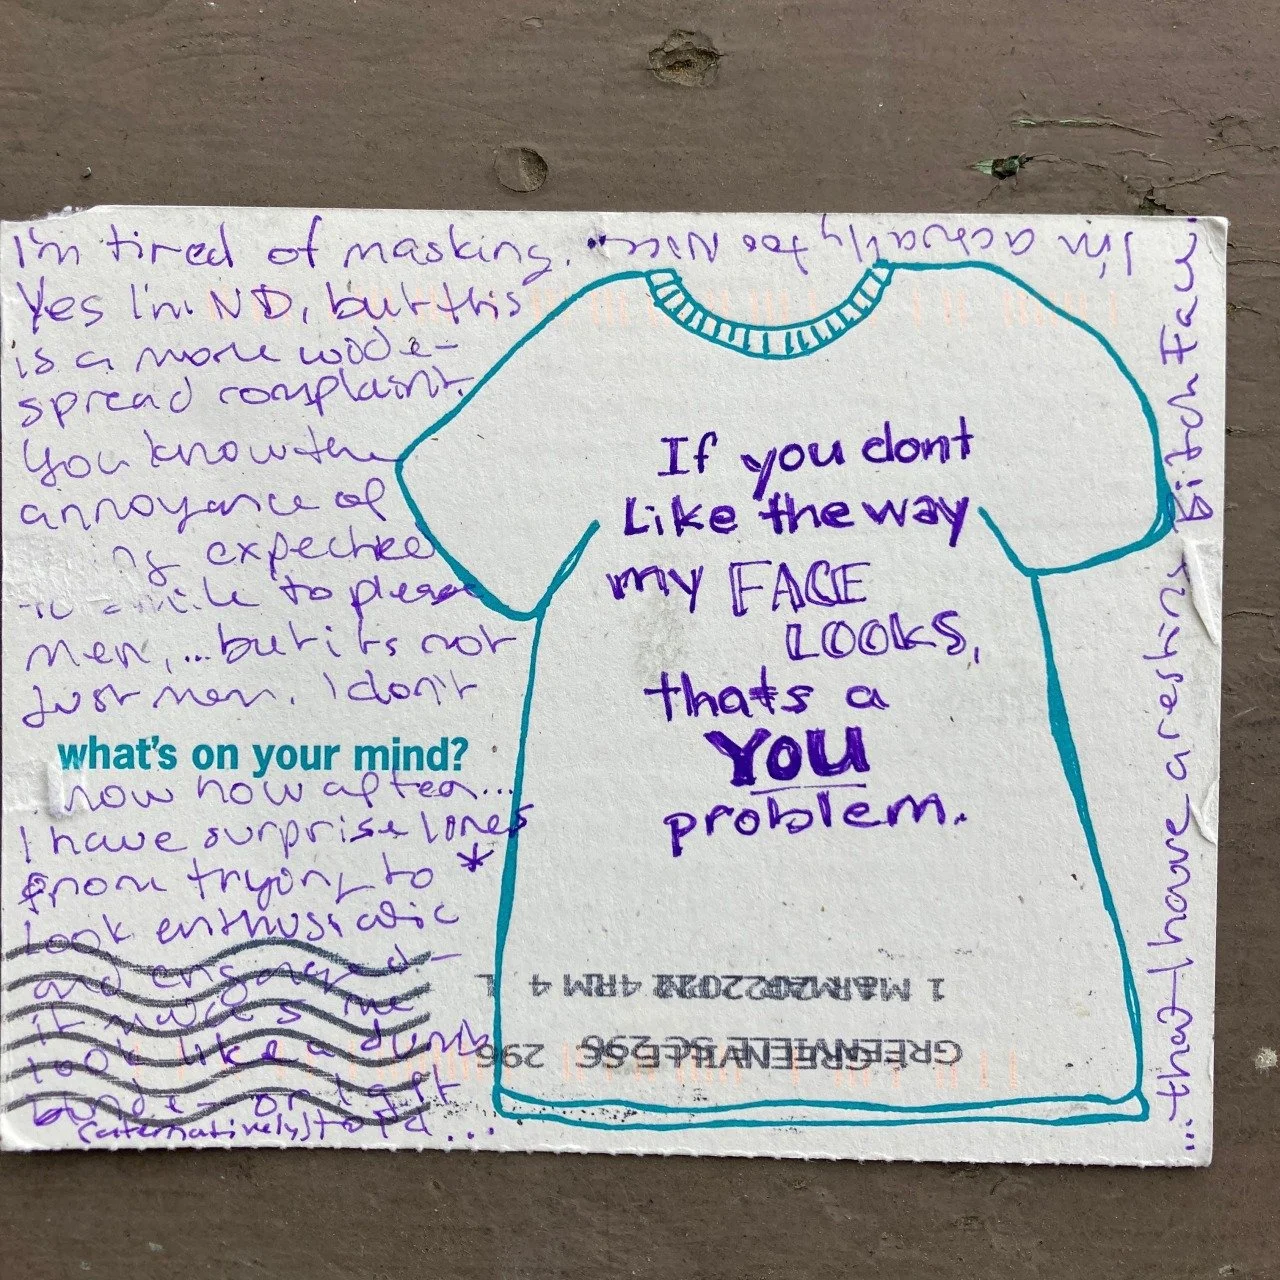 I'm tired of masking.
Yes I'm ND, but this
is a more wide-
spread complaint.
You know the
annoyance of
expected
to smile to please
men,...but its not
Just men. I don't
what's on your mind?
know how often...
I have surprise lines
from trying to *
look enthusiatic
and engaged-
it makes me
look like a dumb
blonde - or I get
(alternatively) told...
...that I have a resting Bitch Face.
I'm actually too Nice.
If you dont
Like the way
my FACE
LOOKS,
thats a
YOU
problem.
GREENVILLE SC 296
1 MAR 2022 PM 4 L